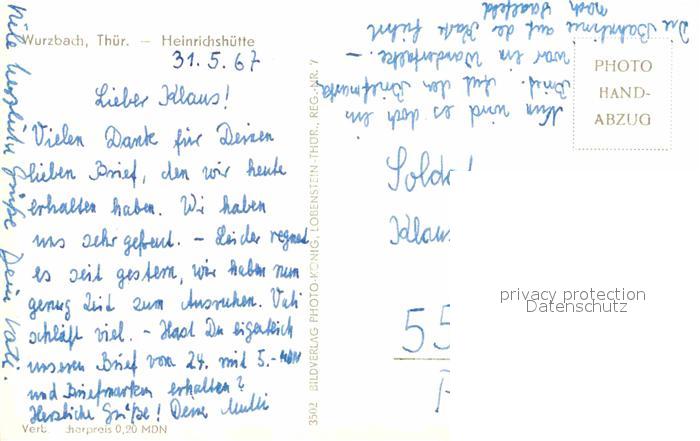 Wurzbach, Thür. – Heinrichshütte
31. 5. 67
Lieber Klaus!
Vielen Dank für Deinen
lieben Brief, den wir heute
erhalten haben. Wir haben
uns sehr gefreut. – Leider regnet
es seit gestern, wir haben nun
genug Zeit zum Ausruhen. Vati
schläft viel. – Hast Du eigentlich
unseren Brief vom 24. mit 5.- MDN
und Briefmarken erhalten?
Herzliche Grüße! Deine Mutti
Viele herzliche Grüße Dein Vati.
Verb. cherpreis 0,20 MDN
3502 BILDVERLAG PHOTO-KÖNIG, LOBENSTEIN-THÜR., REG.-NR. 7
Nun wird es doch ein
Brief. Auf den Briefmarken
war ein Wanderfalke. –
Die Bahnlinie auf der Karte führt
nach Saalfeld
PHOTO
HAND-
ABZUG
Sold
Klaus
55
privacy protection
Datenschutz